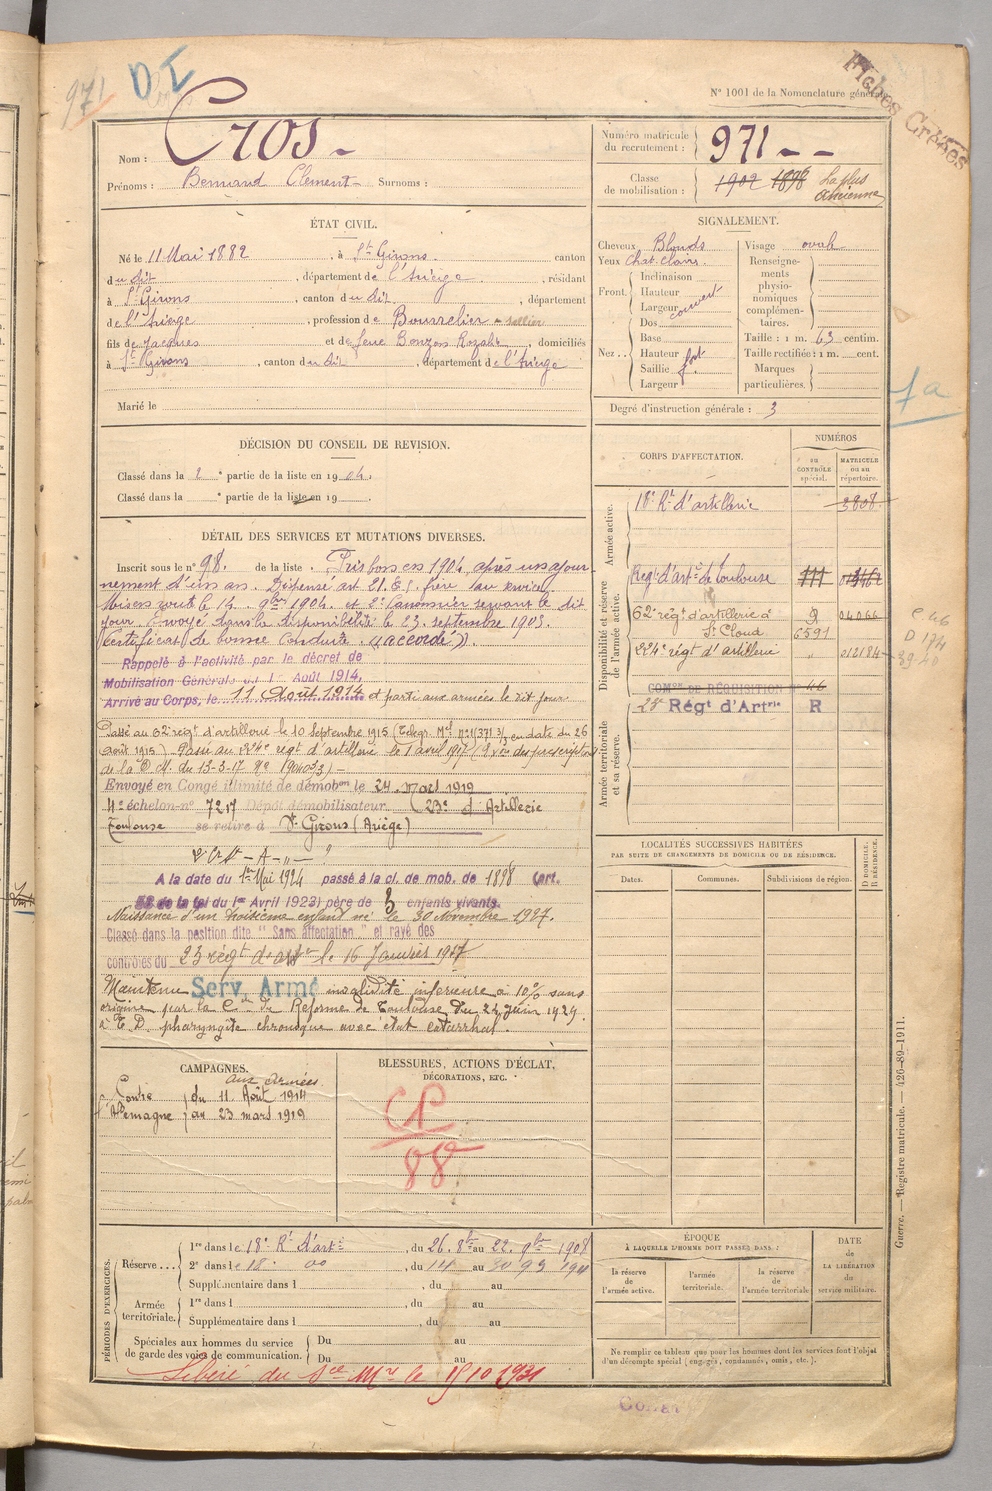 971
D I
N° 1001 de la Nomenclature générale
Fiches Créées
Nom : Cros
Prénoms : Bernard Clément Surnoms :
Numéro matricule du recrutement : 971
Classe de mobilisation : 1902 1898 La plus ancienne
ÉTAT CIVIL.
Né le 11 Mai 1882, à St Girons, canton
du dit, département de l'Ariège, résidant
à St Girons, canton du dit, département
de l'Ariège, profession de Bourrelier - sellier
fils de Jacques et de feue Bonzom Rozalie, domiciliés
à St Girons, canton du dit, département de l'Ariège
Marié le
SIGNALEMENT.
Cheveux Blonds
Yeux Chat. clairs
Front. Inclinaison
Hauteur
Largeur couvert
Nez.. Dos
Base
Hauteur
Saillie fort
Largeur
Visage ovale
Renseignements physionomiques complémentaires.
Taille : 1 m. 63 centim.
Taille rectifiée : 1 m. cent.
Marques particulières.
Degré d'instruction générale : 3
1a
DÉCISION DU CONSEIL DE REVISION.
Classé dans la 2e partie de la liste en 1904.
Classé dans la e partie de la liste en 19
DÉTAIL DES SERVICES ET MUTATIONS DIVERSES.
Inscrit sous le n° 98 de la liste. Pris bon en 1904 après un ajour-
nement d'un an. Dispensé art 21.
Mis en route le 14. 9bre 1904. et 2e Canonnier servant le dit
jour. Envoyé dans la disponibilité le 23. septembre 1905.
Certificat de bonne Conduite "accordé".
Rappelé à l'activité par le décret de
Mobilisation Générale du 1er Août 1914,
Arrivé au Corps, le 11 Août 1914 et parti aux armées le dit jour
Passé au 62e régt d'artillerie le 10 septembre 1915 en date du 26
août 1915) Passé au 224e régt d'artillerie le 1 avril 1917
de la D.M. du 13-3-17
Envoyé en Congé illimité de démobon le 24 Mars 1919
4e échelon n° 7217 Dépôt démobilisateur (23e d'Artillerie
Toulouse se retire à St Girons (Ariège)
A la date du 1er Mai 1924 passé à la cl. de mob. de 1898 (art.
58 de la loi du 1er Avril 1923) père de 3 enfants vivants.
Naissance d'un troisième enfant né le 30 Novembre 1927.
Classé dans la position dite "Sans affectation" et rayé des
contrôles du 23 régt d'artie le 16 Janvier 1927
Maintenu Serv. Armé invalidité inférieure à 10% sans
origine par la Con de Réforme de Toulouse du 22 juin 1929.
pharyngite chronique avec état catarrhal.
CORPS D'AFFECTATION.
NUMÉROS
au CONTRÔLE spécial.
MATRICULE ou au répertoire.
Armée active.
18e Rt d'artillerie 3808
Disponibilité et réserve de l'armée active.
Régt d'arte de Toulouse
62e régt d'artillerie à St Cloud R 6591 04066
224e régt d'artillerie " 212184
Armée territoriale et sa réserve.
COMon DE RÉQUISITION N° 46
23e Régt d'Artrie R
C 46
D 174
39-40
LOCALITÉS SUCCESSIVES HABITÉES
PAR SUITE DE CHANGEMENTS DE DOMICILE OU DE RÉSIDENCE.
Dates.
Communes.
Subdivisions de région.
D DOMICILE.
R RÉSIDENCE.
CAMPAGNES.
aux Armées
Contre l'Allemagne
du 11 Août 1914
au 23 mars 1919
BLESSURES, ACTIONS D'ÉCLAT,
DÉCORATIONS, ETC.
CP
88
PÉRIODES D'EXERCICES.
Réserve...
1re dans le 18e Rt d'arte, du 26. 8bre au 22. 9bre 1908
2e dans le 18e do, du 14 au 30 1911
Supplémentaire dans l , du au
Armée territoriale.
1re dans l , du au
Supplémentaire dans l , du au
Spéciales aux hommes du service de garde des voies de communication.
Du au
Du au
Libéré du sce Mre le 15 10 1931
ÉPOQUE
À LAQUELLE L'HOMME DOIT PASSER DANS :
la réserve de l'armée active.
l'armée territoriale.
la réserve de l'armée territoriale
DATE de LA LIBÉRATION du service militaire.
Ne remplir ce tableau que pour les hommes dont les services font l'objet
d'un décompte spécial (engagés, condamnés, omis, etc.).
Guerre. — Registre matricule. — 426-89-1911.